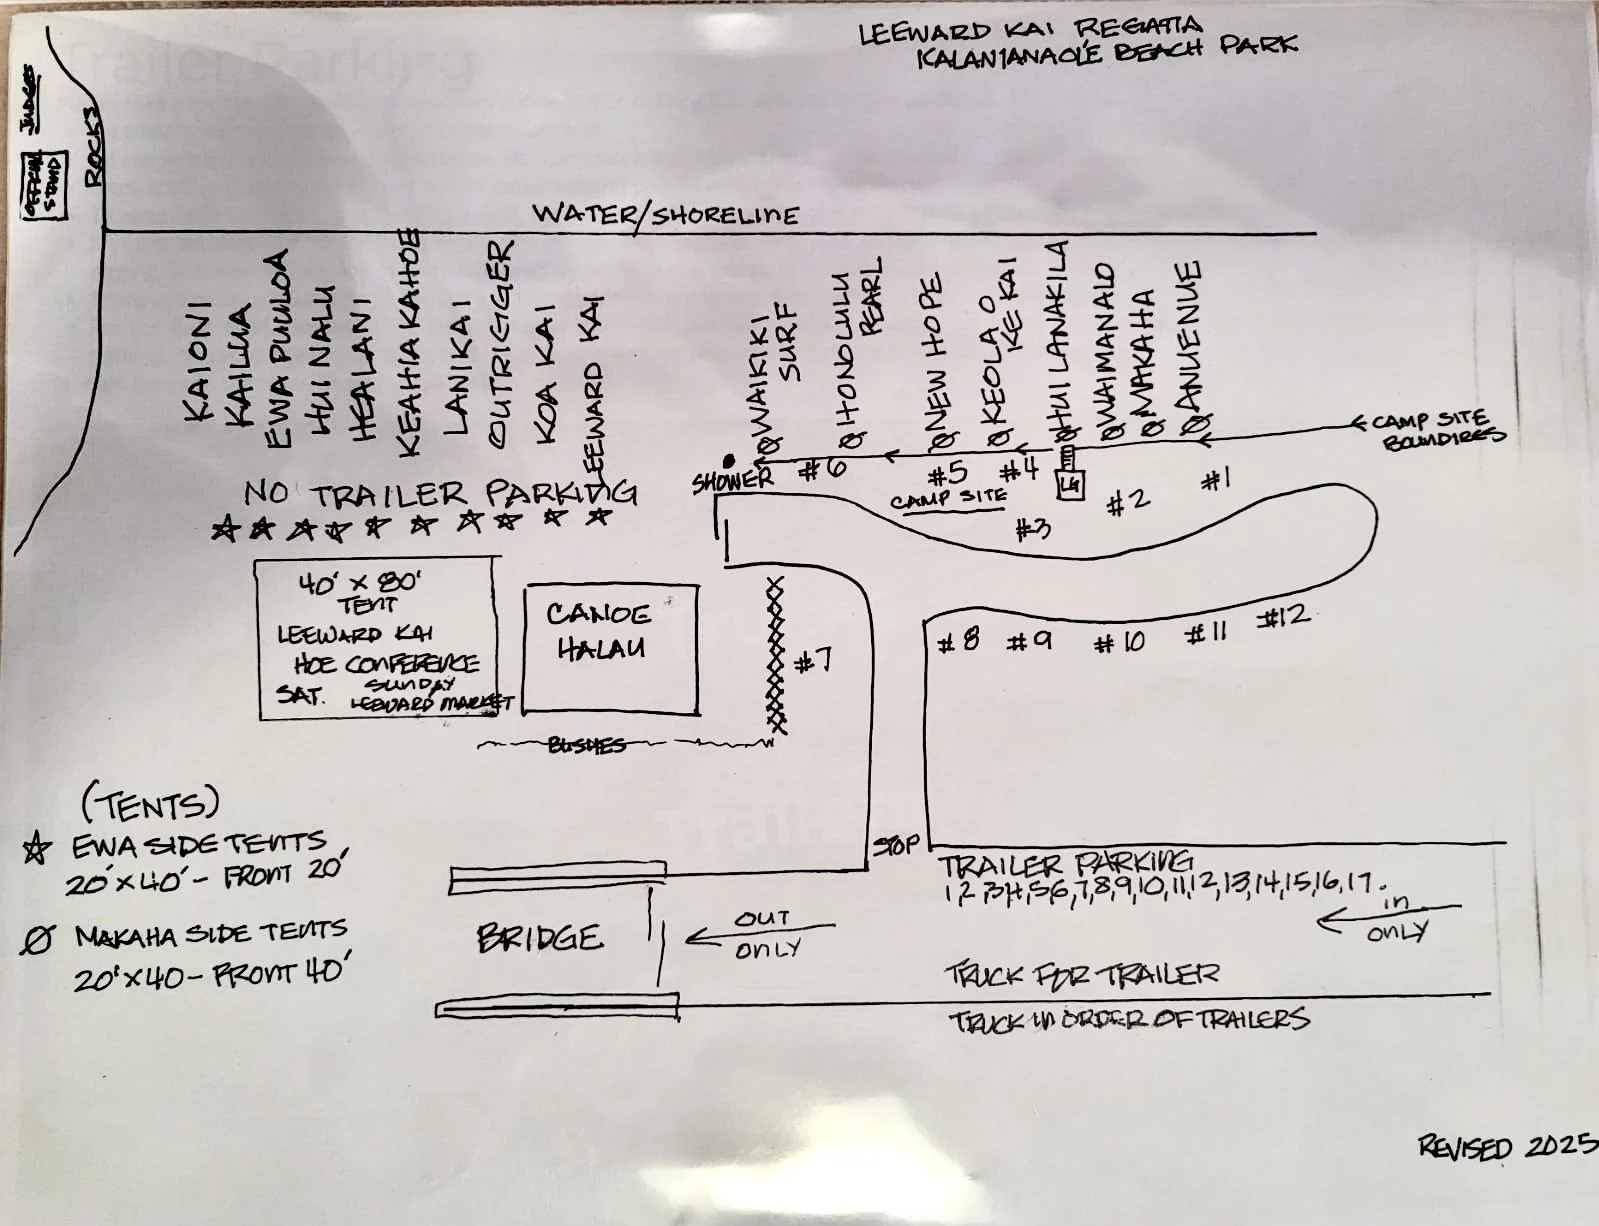 LEEWARD KAI REGATTA
KALANIANAOLE BEACH PARK
JUDGES
OFFICIAL
STAND
ROCKS
WATER/SHORELINE
KAIONI
KAILUA
EWA PUULOA
HUI NALU
HEALANI
KEAHIAKAHOE
LANIKAI
OUTRIGGER
KOA KAI
LEEWARD KAI
WAIKIKI
SURF
HONOLULU
PEARL
NEW HOPE
KEOLA O
KE KAI
HUI LANAKILA
WAIMANALO
MAKAHA
ANUENUE
CAMP SITE
BOUNDIRES
SHOWER
#6
#5
#4
LG
#2
#1
CAMP SITE
#3
NO TRAILER PARKING
40' X 80'
TENT
LEEWARD KAI
HOE CONFERENCE
SAT. SUNDAY
LEEWARD MARKET
CANOE
HALAU
#7
#8 #9 #10 #11 #12
BUSHES
(TENTS)
EWA SIDE TENTS
20'X40'- FRONT 20'
MAKAHA SIDE TENTS
20'X40- FRONT 40'
STOP
TRAILER PARKING
1,2,3,4,5,6,7,8,9,10,11,12,13,14,15,16,17.
IN
ONLY
BRIDGE
OUT
ONLY
TRUCK FOR TRAILER
TRUCK IN ORDER OF TRAILERS
REVISED 2025